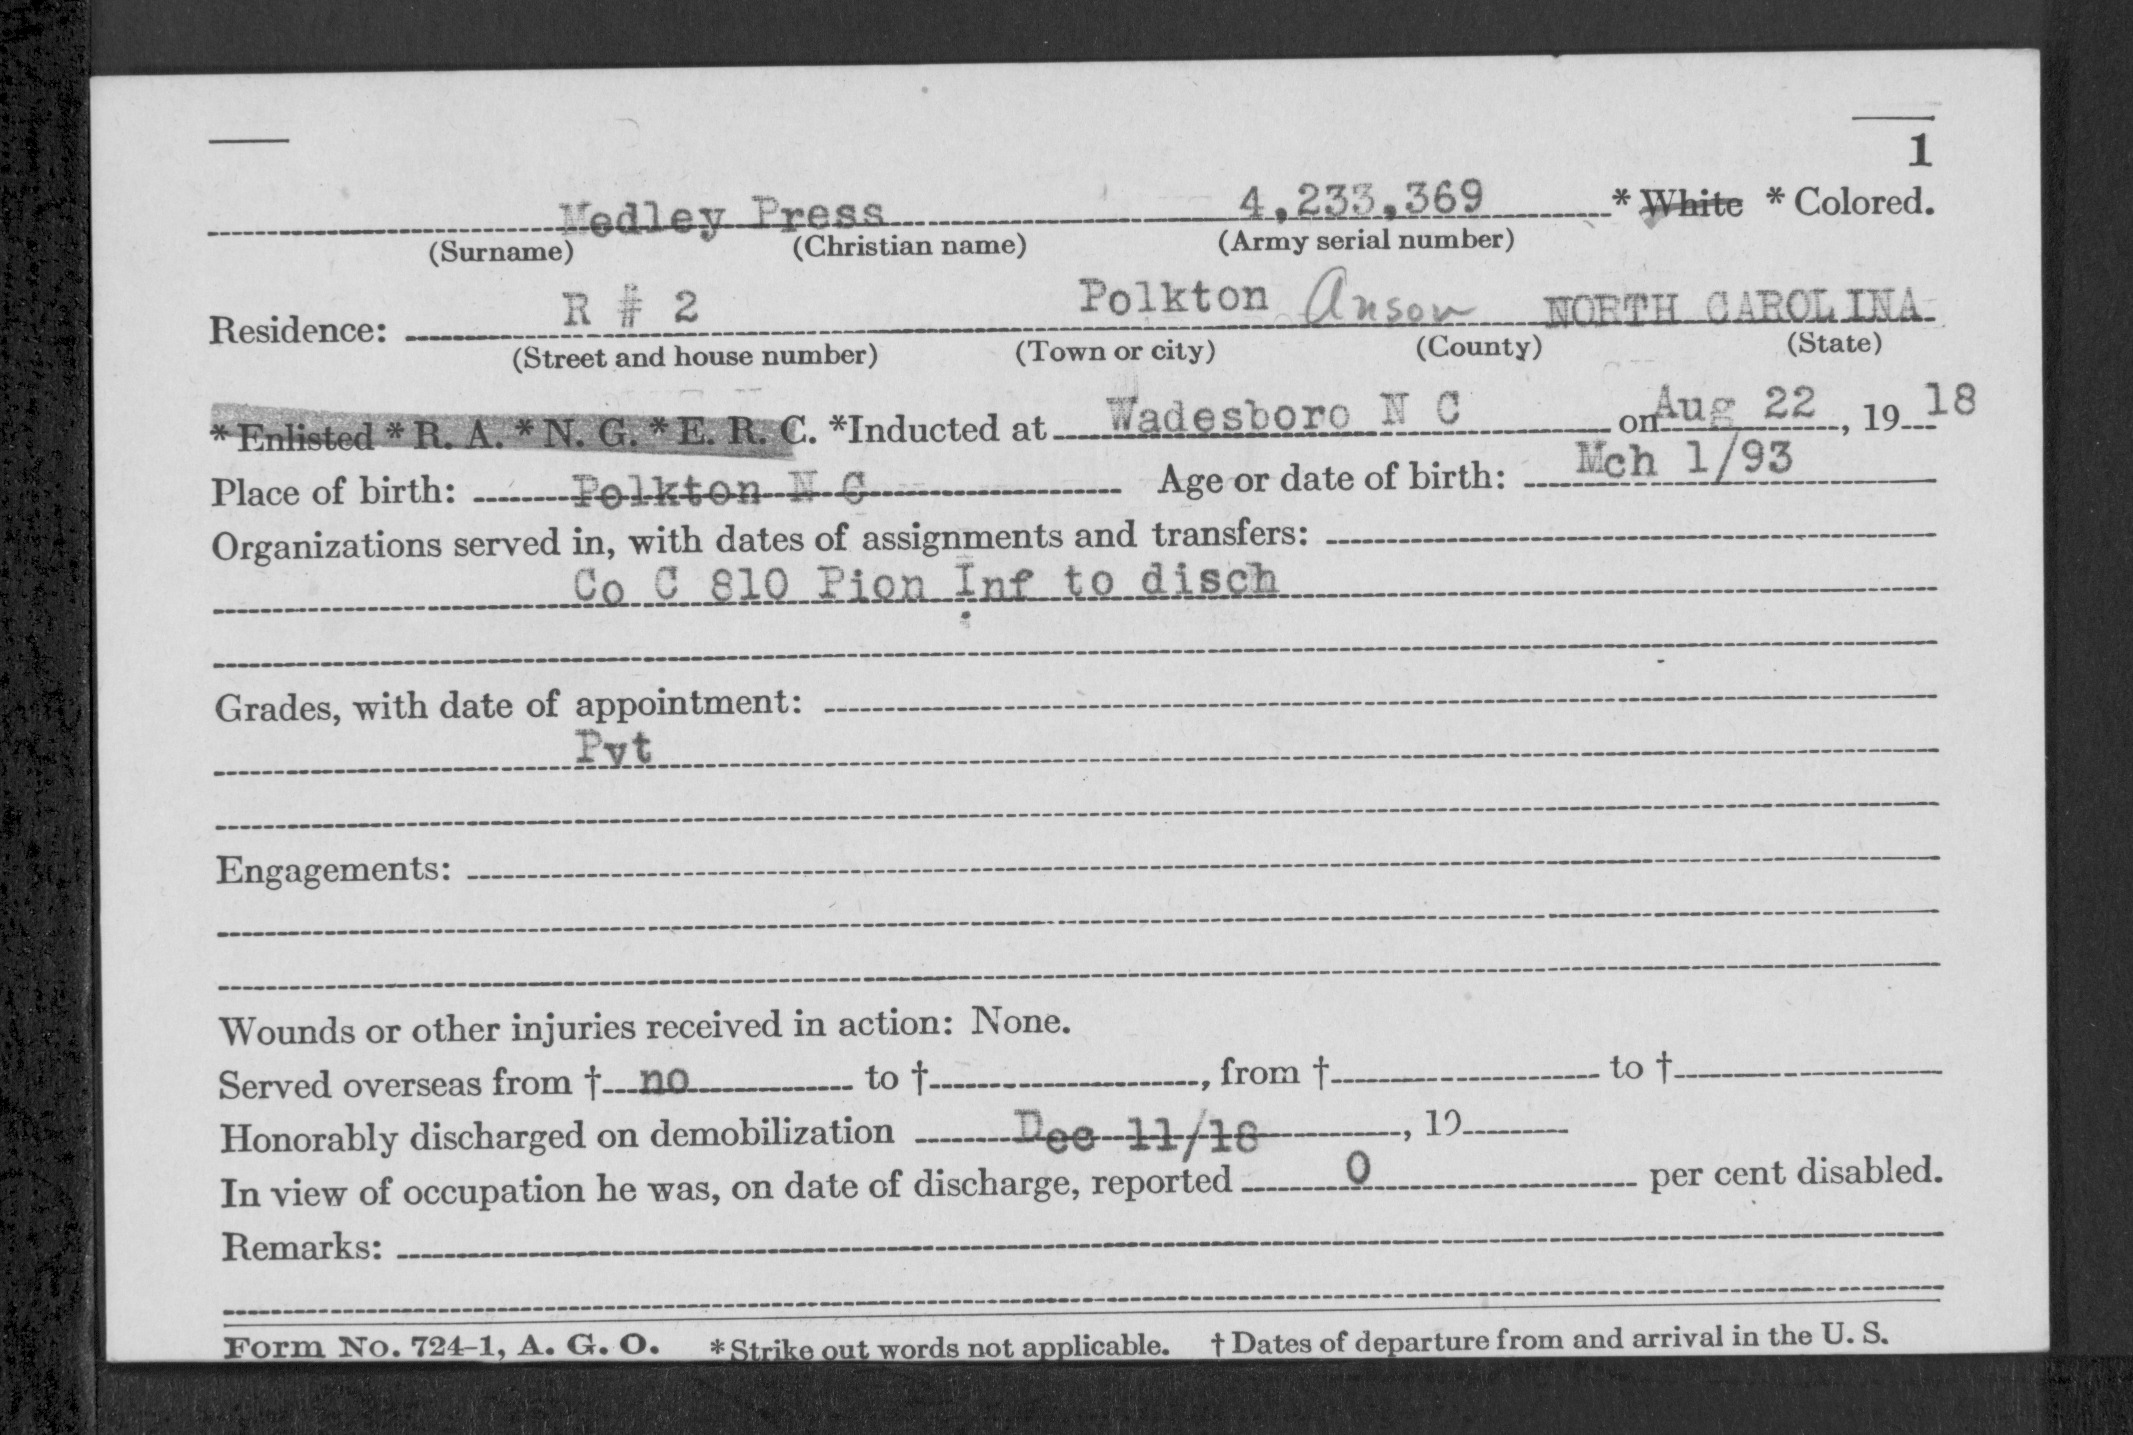 1
Medley Press 4,233,369 * White * Colored.
(Surname) (Christian name) (Army serial number)
Residence: R # 2 Polkton Anson NORTH CAROLINA
(Street and house number) (Town or city) (County) (State)
* Enlisted * R. A. * N. G. * E. R. C. *Inducted at Wadesboro N C on Aug 22, 19 18
Place of birth: Polkton N C Age or date of birth: Mch 1/93
Organizations served in, with dates of assignments and transfers:
Co C 810 Pion Inf to disch
Grades, with date of appointment:
Pvt
Engagements:
Wounds or other injuries received in action: None.
Served overseas from † no to †, from † to †
Honorably discharged on demobilization Dec 11/18, 19
In view of occupation he was, on date of discharge, reported 0 per cent disabled.
Remarks:
Form No. 724-1, A. G. O. * Strike out words not applicable. † Dates of departure from and arrival in the U. S.